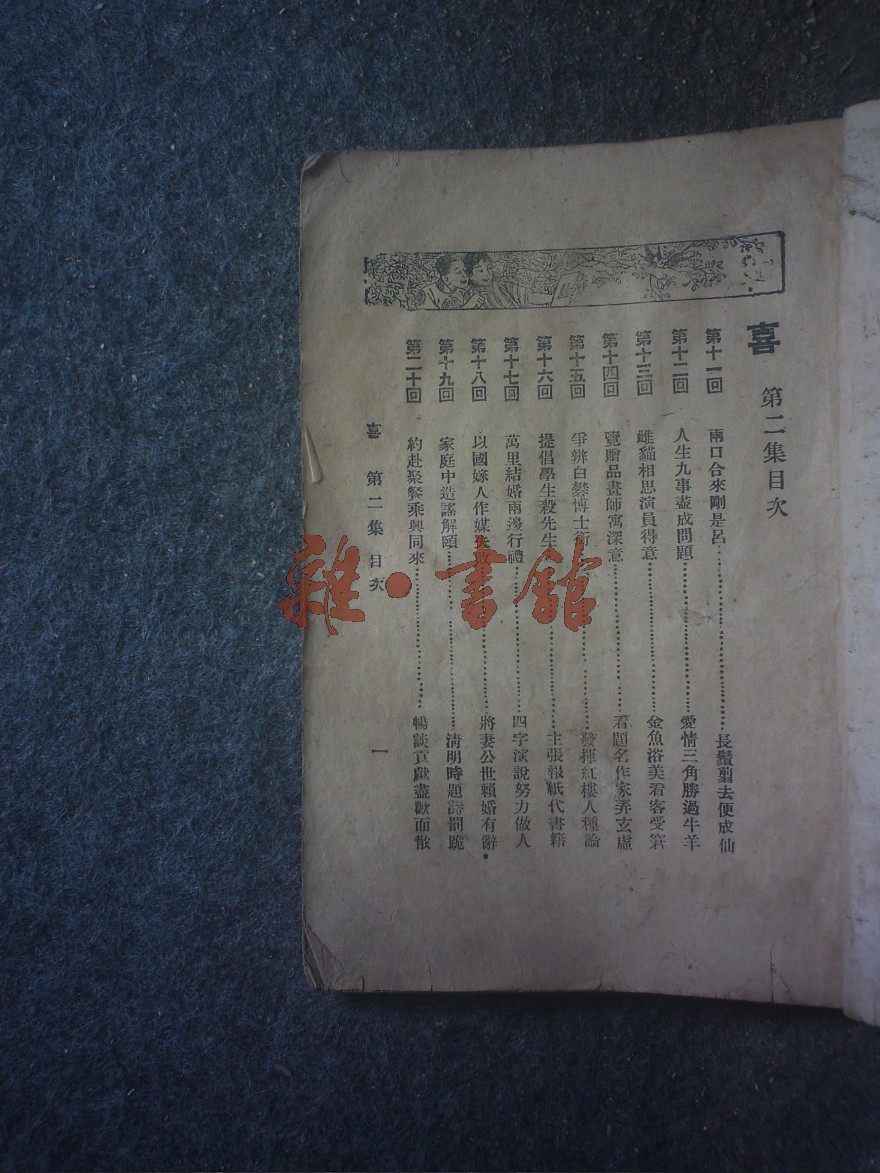 喜 第二集目次
第十一回 兩口合來剛是呂……長鬚剪去便成仙
第十二回 人生九事盡成問題……愛情三角勝過牛羊
第十三回 雌貓相思演員得意……金魚浴美看客受窘
第十四回 覽贈品畫師寓深意……看題名作家弄玄虛
第十五回 爭辨白礬博士銜……發揮紅樓人種論
第十六回 提倡學生殺先生……主張報紙代書籍
第十七回 萬里結婚兩邊行禮……四字演說努力做人
第十八回 以國嫁人作媒失敗……將妻公世賴婚有辭
第十九回 家庭中造謠解頤……清明時題詩罰跪
第二十回 約赴聚餐乘興同來……暢談貢獻盡歡而散
喜 第二集 目次 一
雜·書館